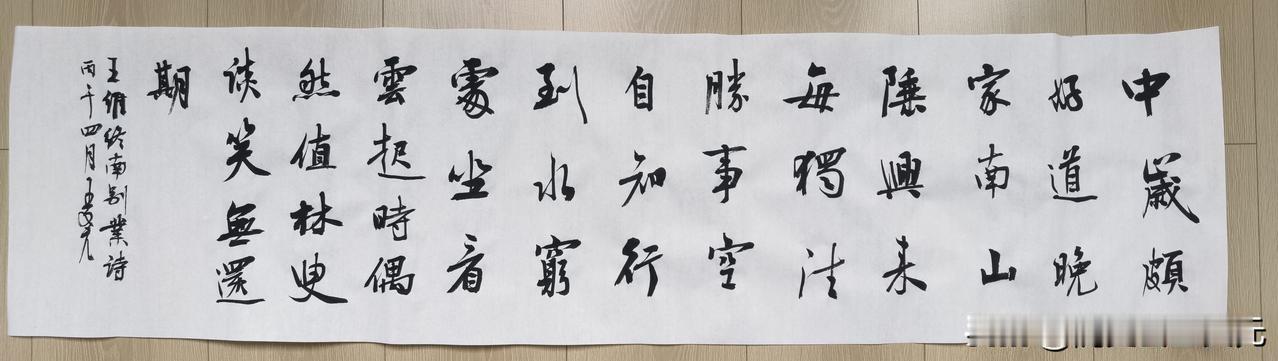 中歲頗
好道晚
家南山
陲興来
每獨往
勝事空
自知行
到水窮
處坐看
雲起時偶
然值林叟
談笑無還
期
王維终南别業詩
丙午四月